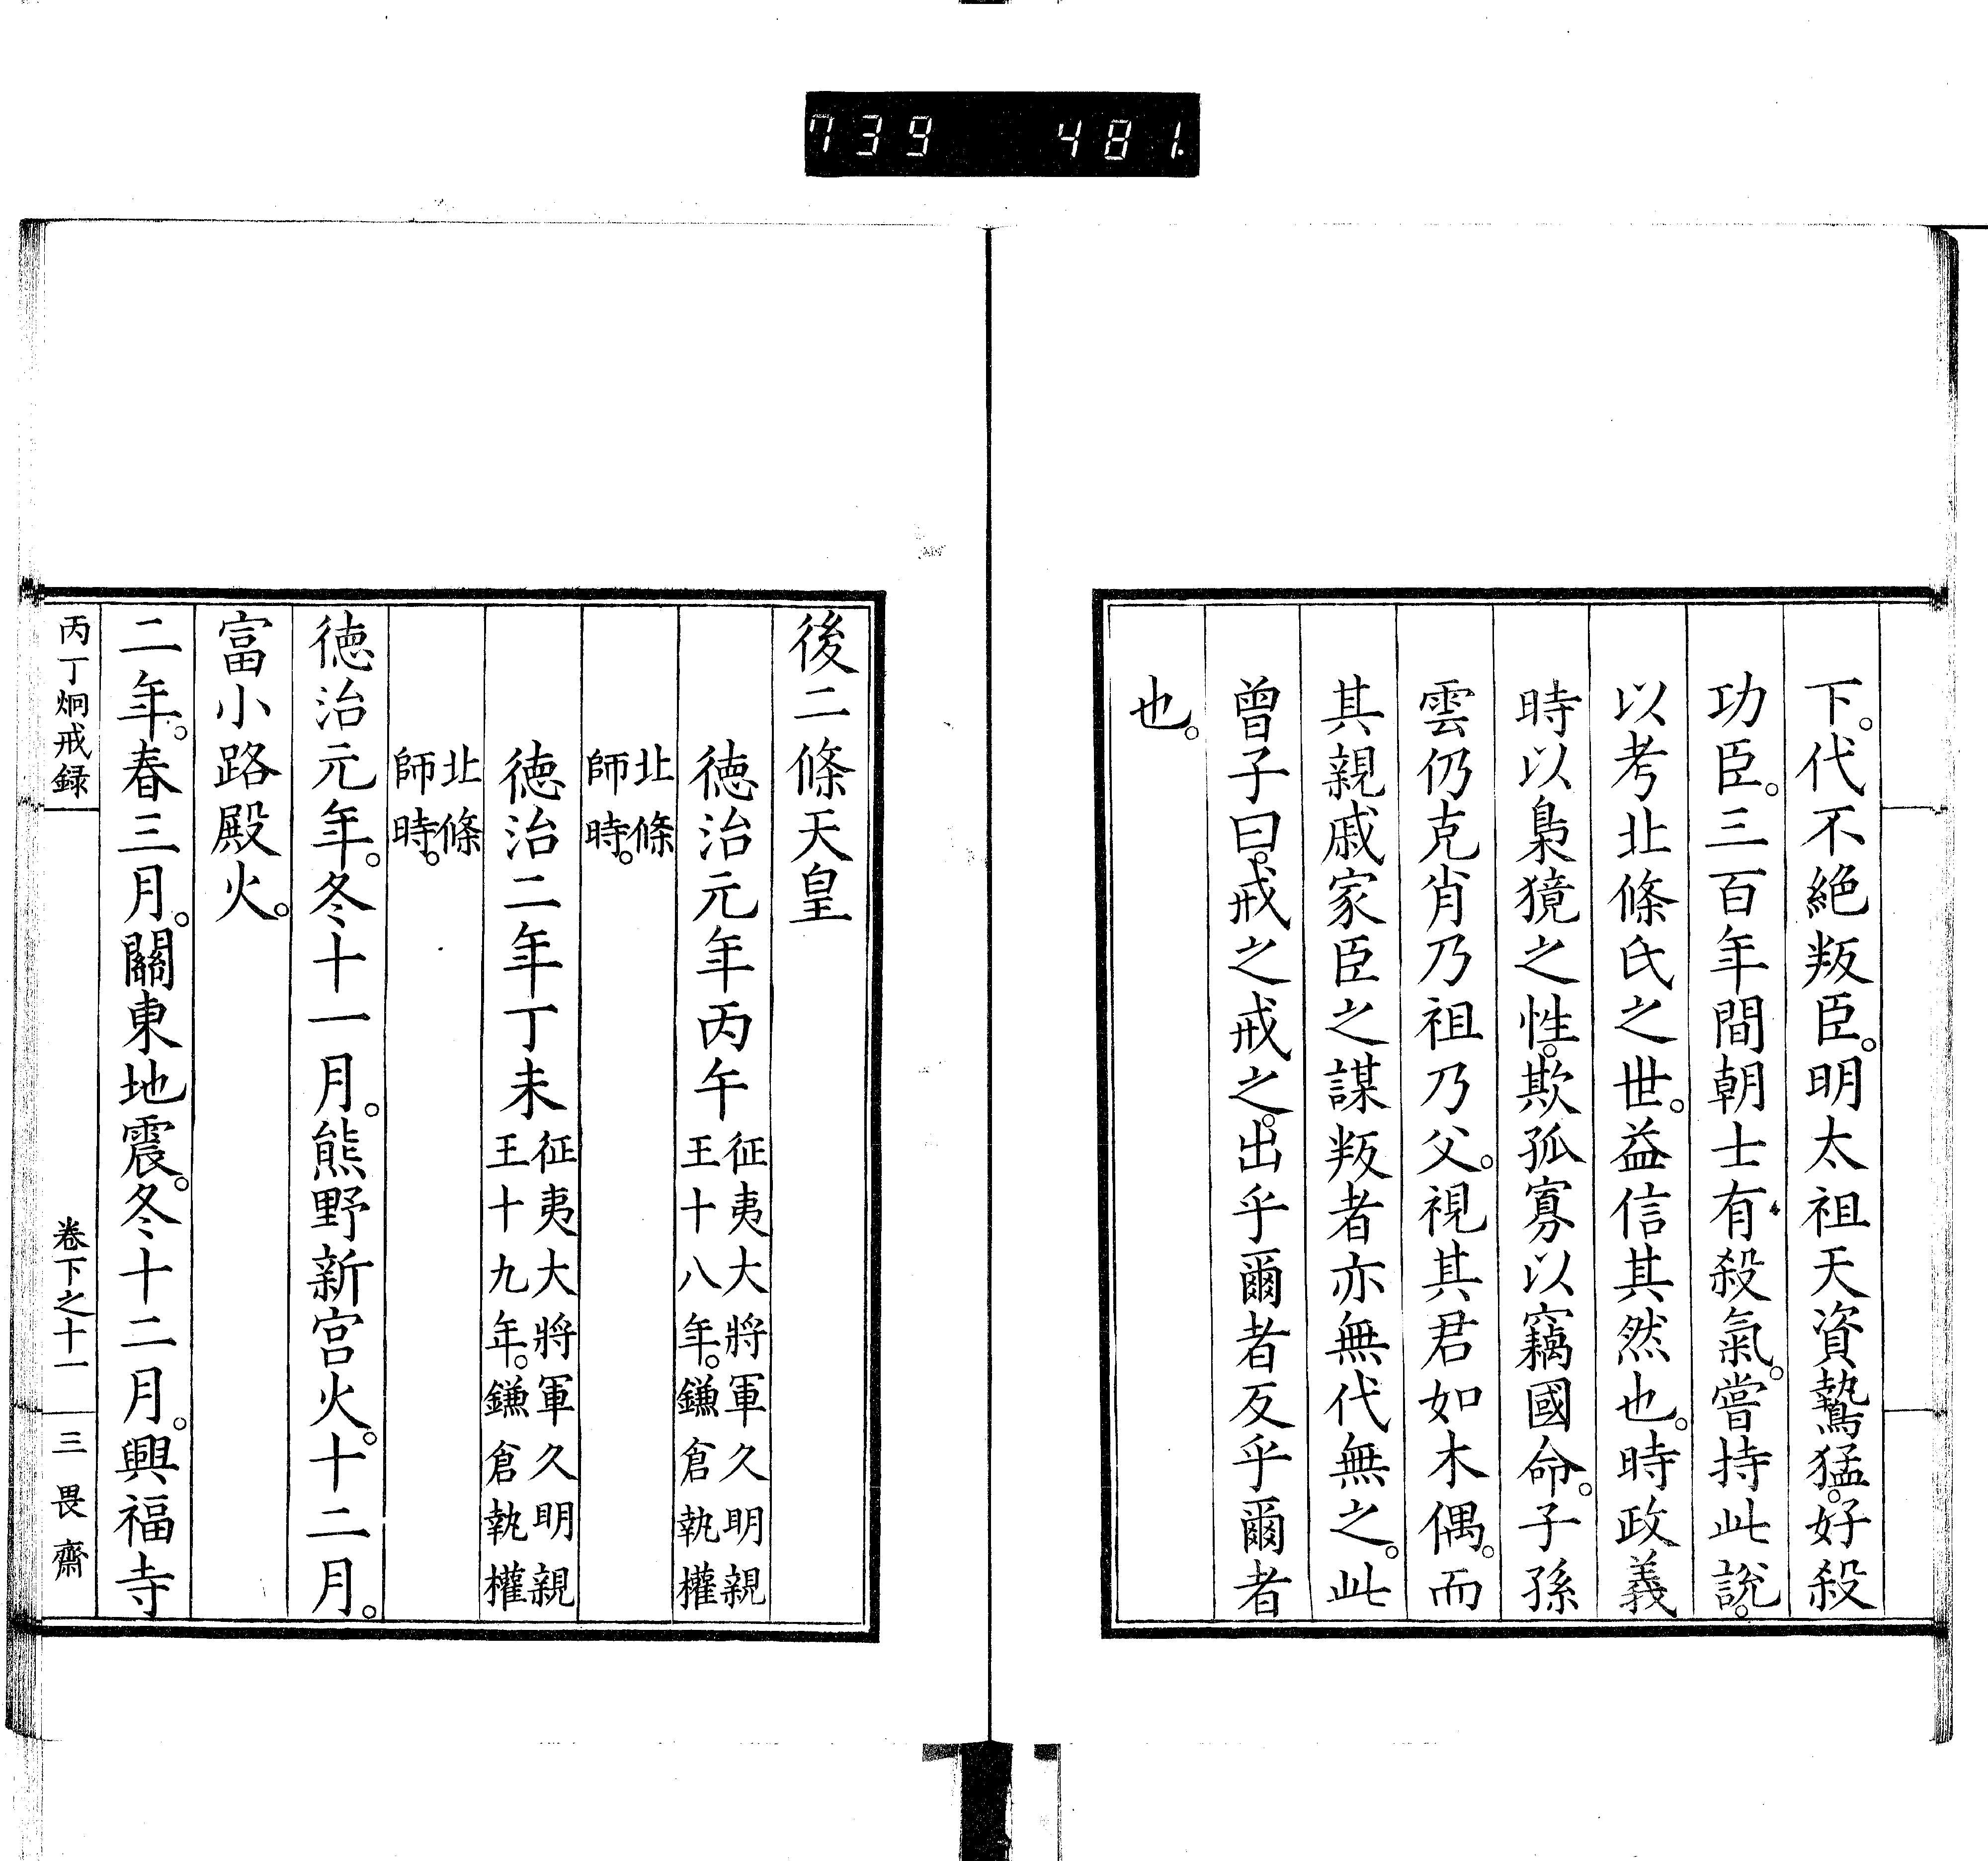 739 481.
下。代不絶叛臣。明太祖天資鷙猛。好殺
功臣。三百年間朝士有殺氣。嘗持此説。
以考北條氏之世。益信其然也。時政義
時以梟獍之性。欺孤寡以竊國命。子孫
雲仍克肖乃祖乃父。視其君如木偶。而
其親戚家臣之謀叛者亦無代無之。此
曾子曰。戒之戒之。出乎爾者反乎爾者
也。
後二條天皇
徳治元年丙午征夷大將軍久明親
王十八年。鎌倉執權
北條
師時。
徳治二年丁未征夷大將軍久明親
王十九年。鎌倉執權
北條
師時。
徳治元年。冬十一月。熊野新宮火。十二月。
富小路殿火。
二年。春三月。關東地震。冬十二月。興福寺
丙丁炯戒録 卷下之十一 三畏齋